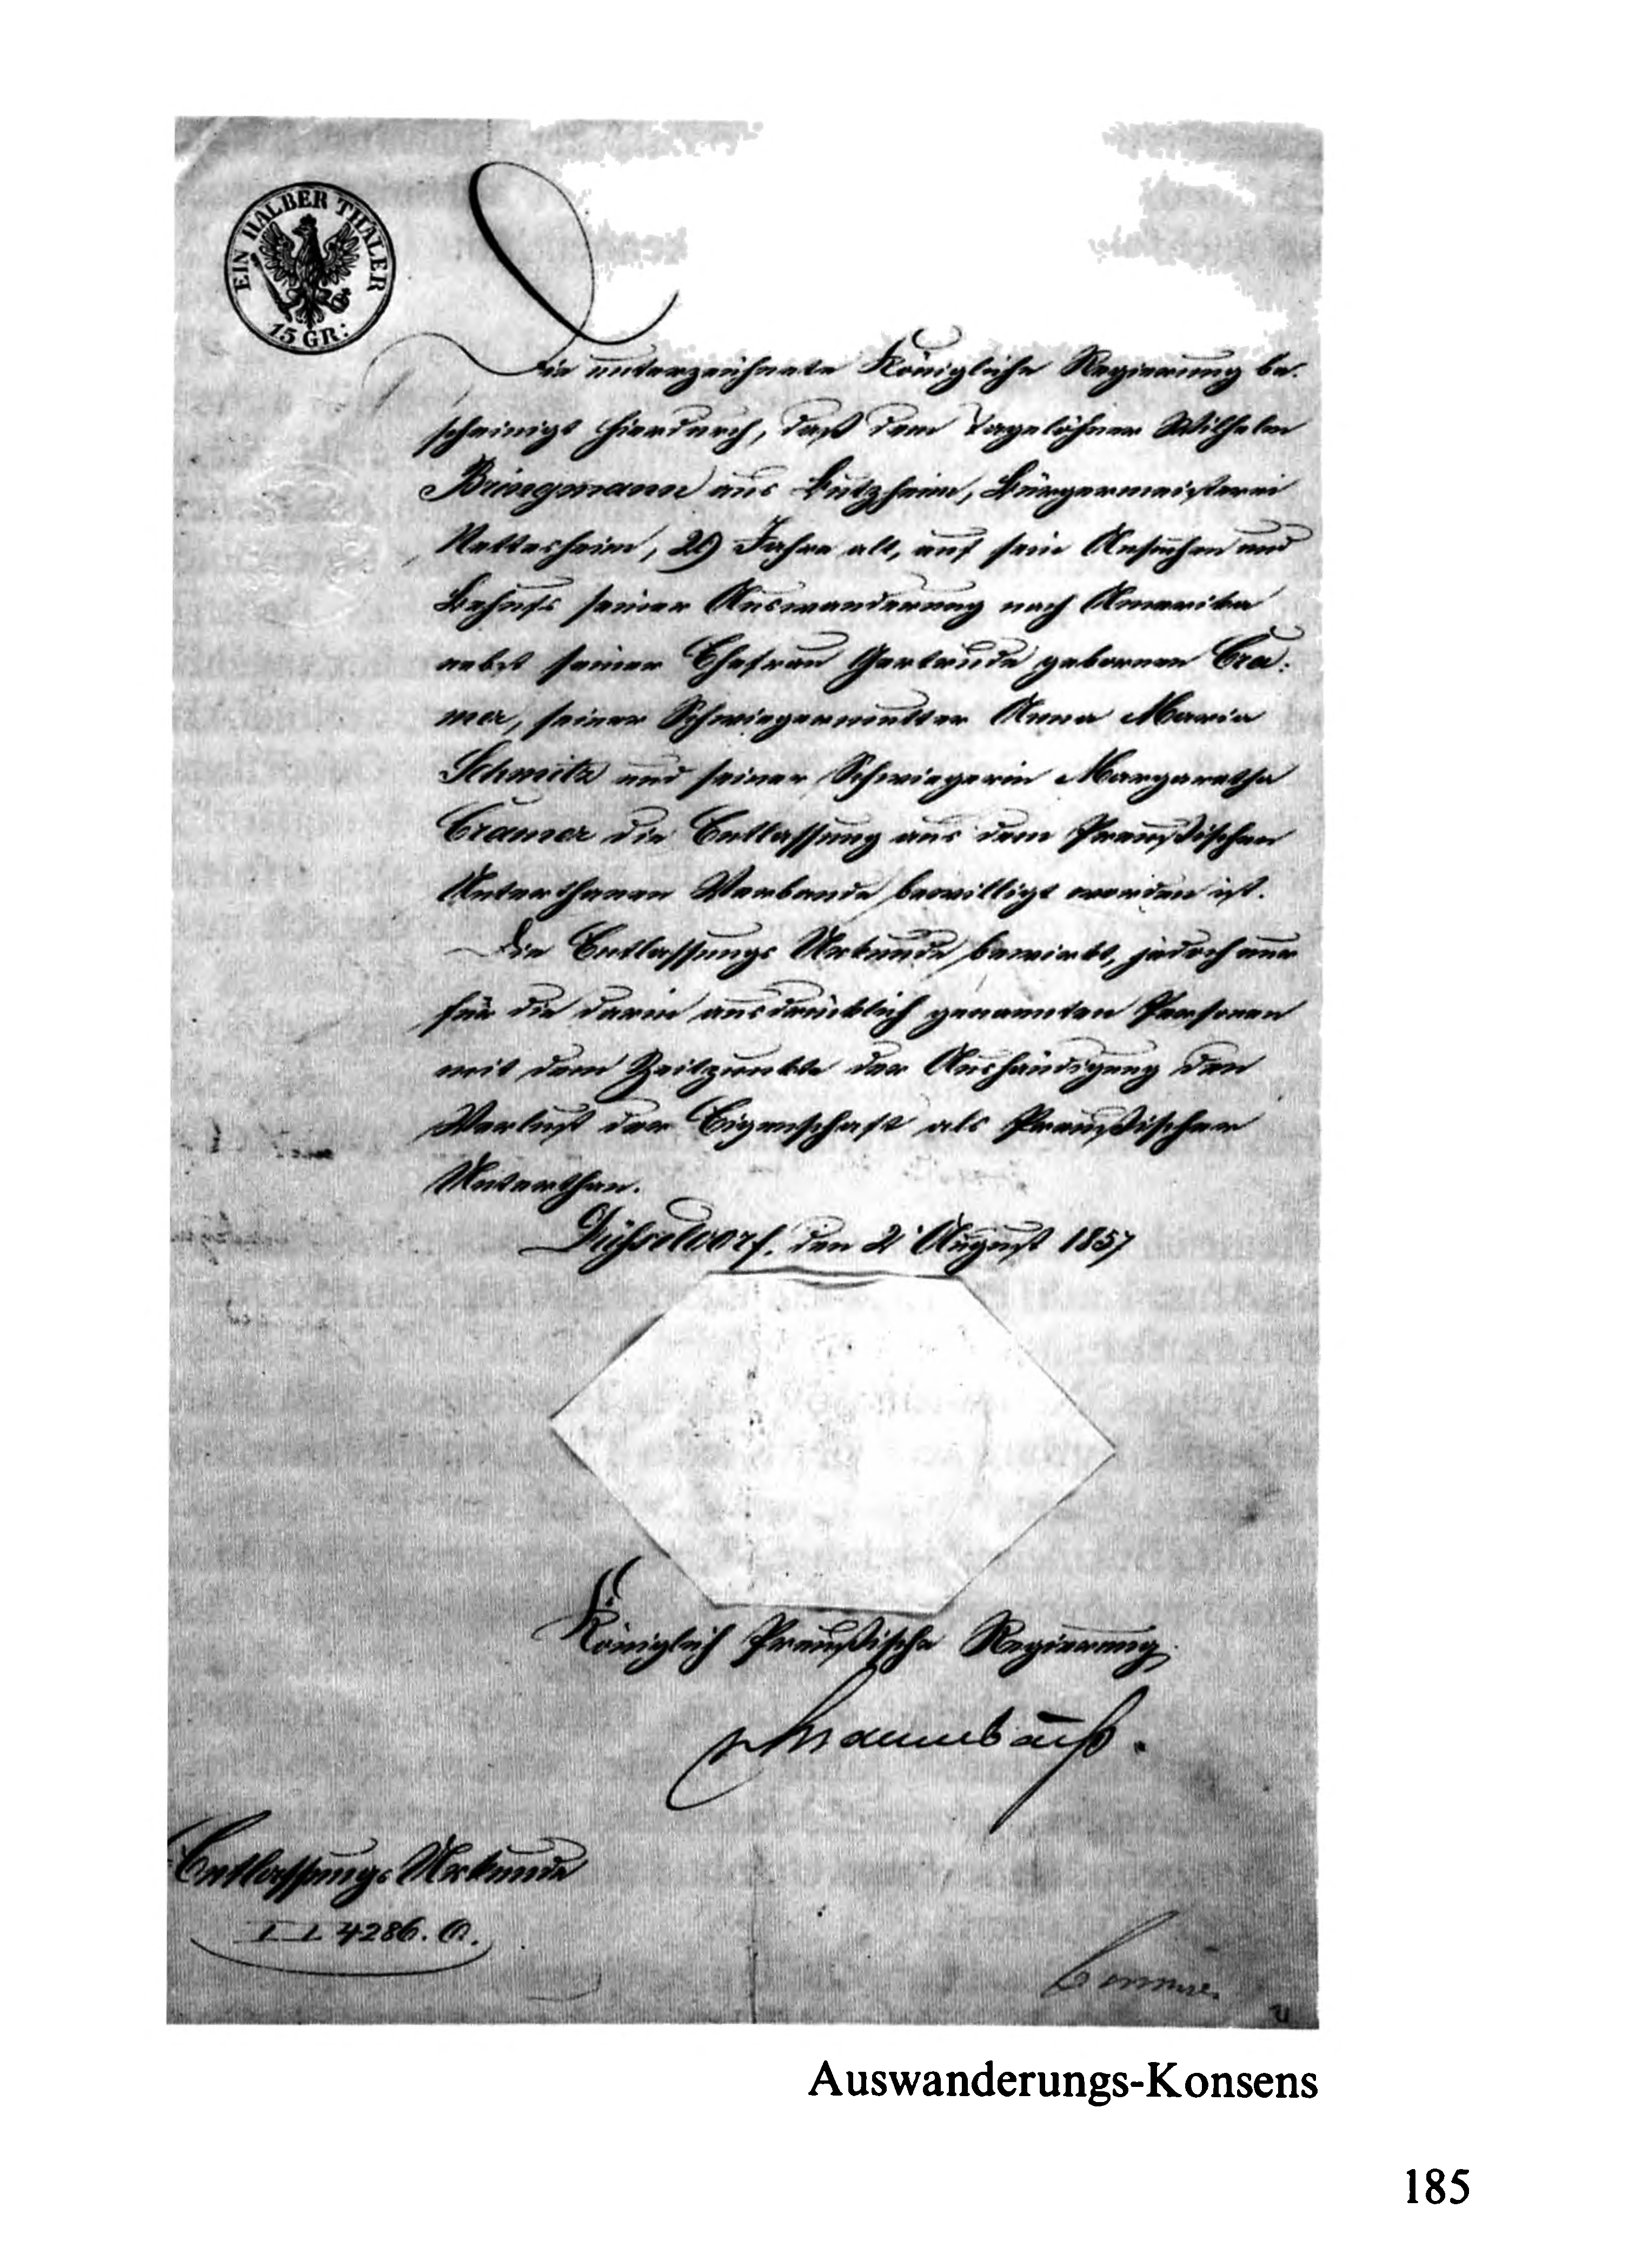 EIN HALBER THALER
15 GR:
Die unterzeichnete Königliche Regierung be-
scheinigt hierdurch, daß dem Tagelöhner Wilhelm
Bringmann aus Butzheim, Bürgermeisterei
Nettesheim, 29 Jahre alt, auf sein Ansuchen und
Behufs seiner Auswanderung nach Amerika
nebst seiner Ehefrau Gertrude geborenen Cra-
mer, seiner Schwiegermutter Anna Maria
Schmitz und seiner Schwiegerin Margaretha
Cramer die Entlassung aus dem Preußischen
Unterthanen Verbande bewilligt worden ist.
Die Entlassungs Urkunde bewirkt, jedoch nur
für die darin ausdrücklich genannten Personen
mit dem Zeitpunkte der Aushändigung den
Verlust der Eigenschaft als Preußischer
Unterthan.
Düsseldorf, den 2 August 1857
Königlich Preußische Regierung.
Entlassungs Urkunde
I I 4286.
Auswanderungs-Konsens
185